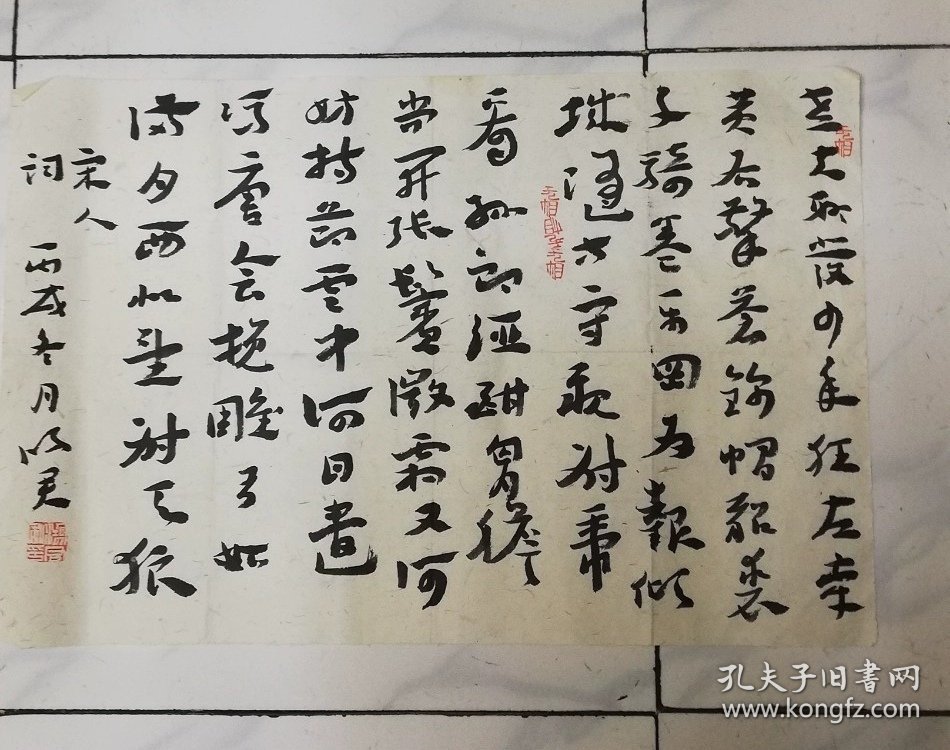 老夫聊发少年狂左牵
黄右擎苍锦帽貂裘
千骑卷平冈为报倾
城随太守亲射虎
看孙郎酒酣胸膽
尚开张鬓微霜又何
妨持节云中何日遣
冯唐会挽雕弓如
满月西北望射天狼
宋人
词 丙戌冬月
孔夫子旧书网
www.kongfz.com